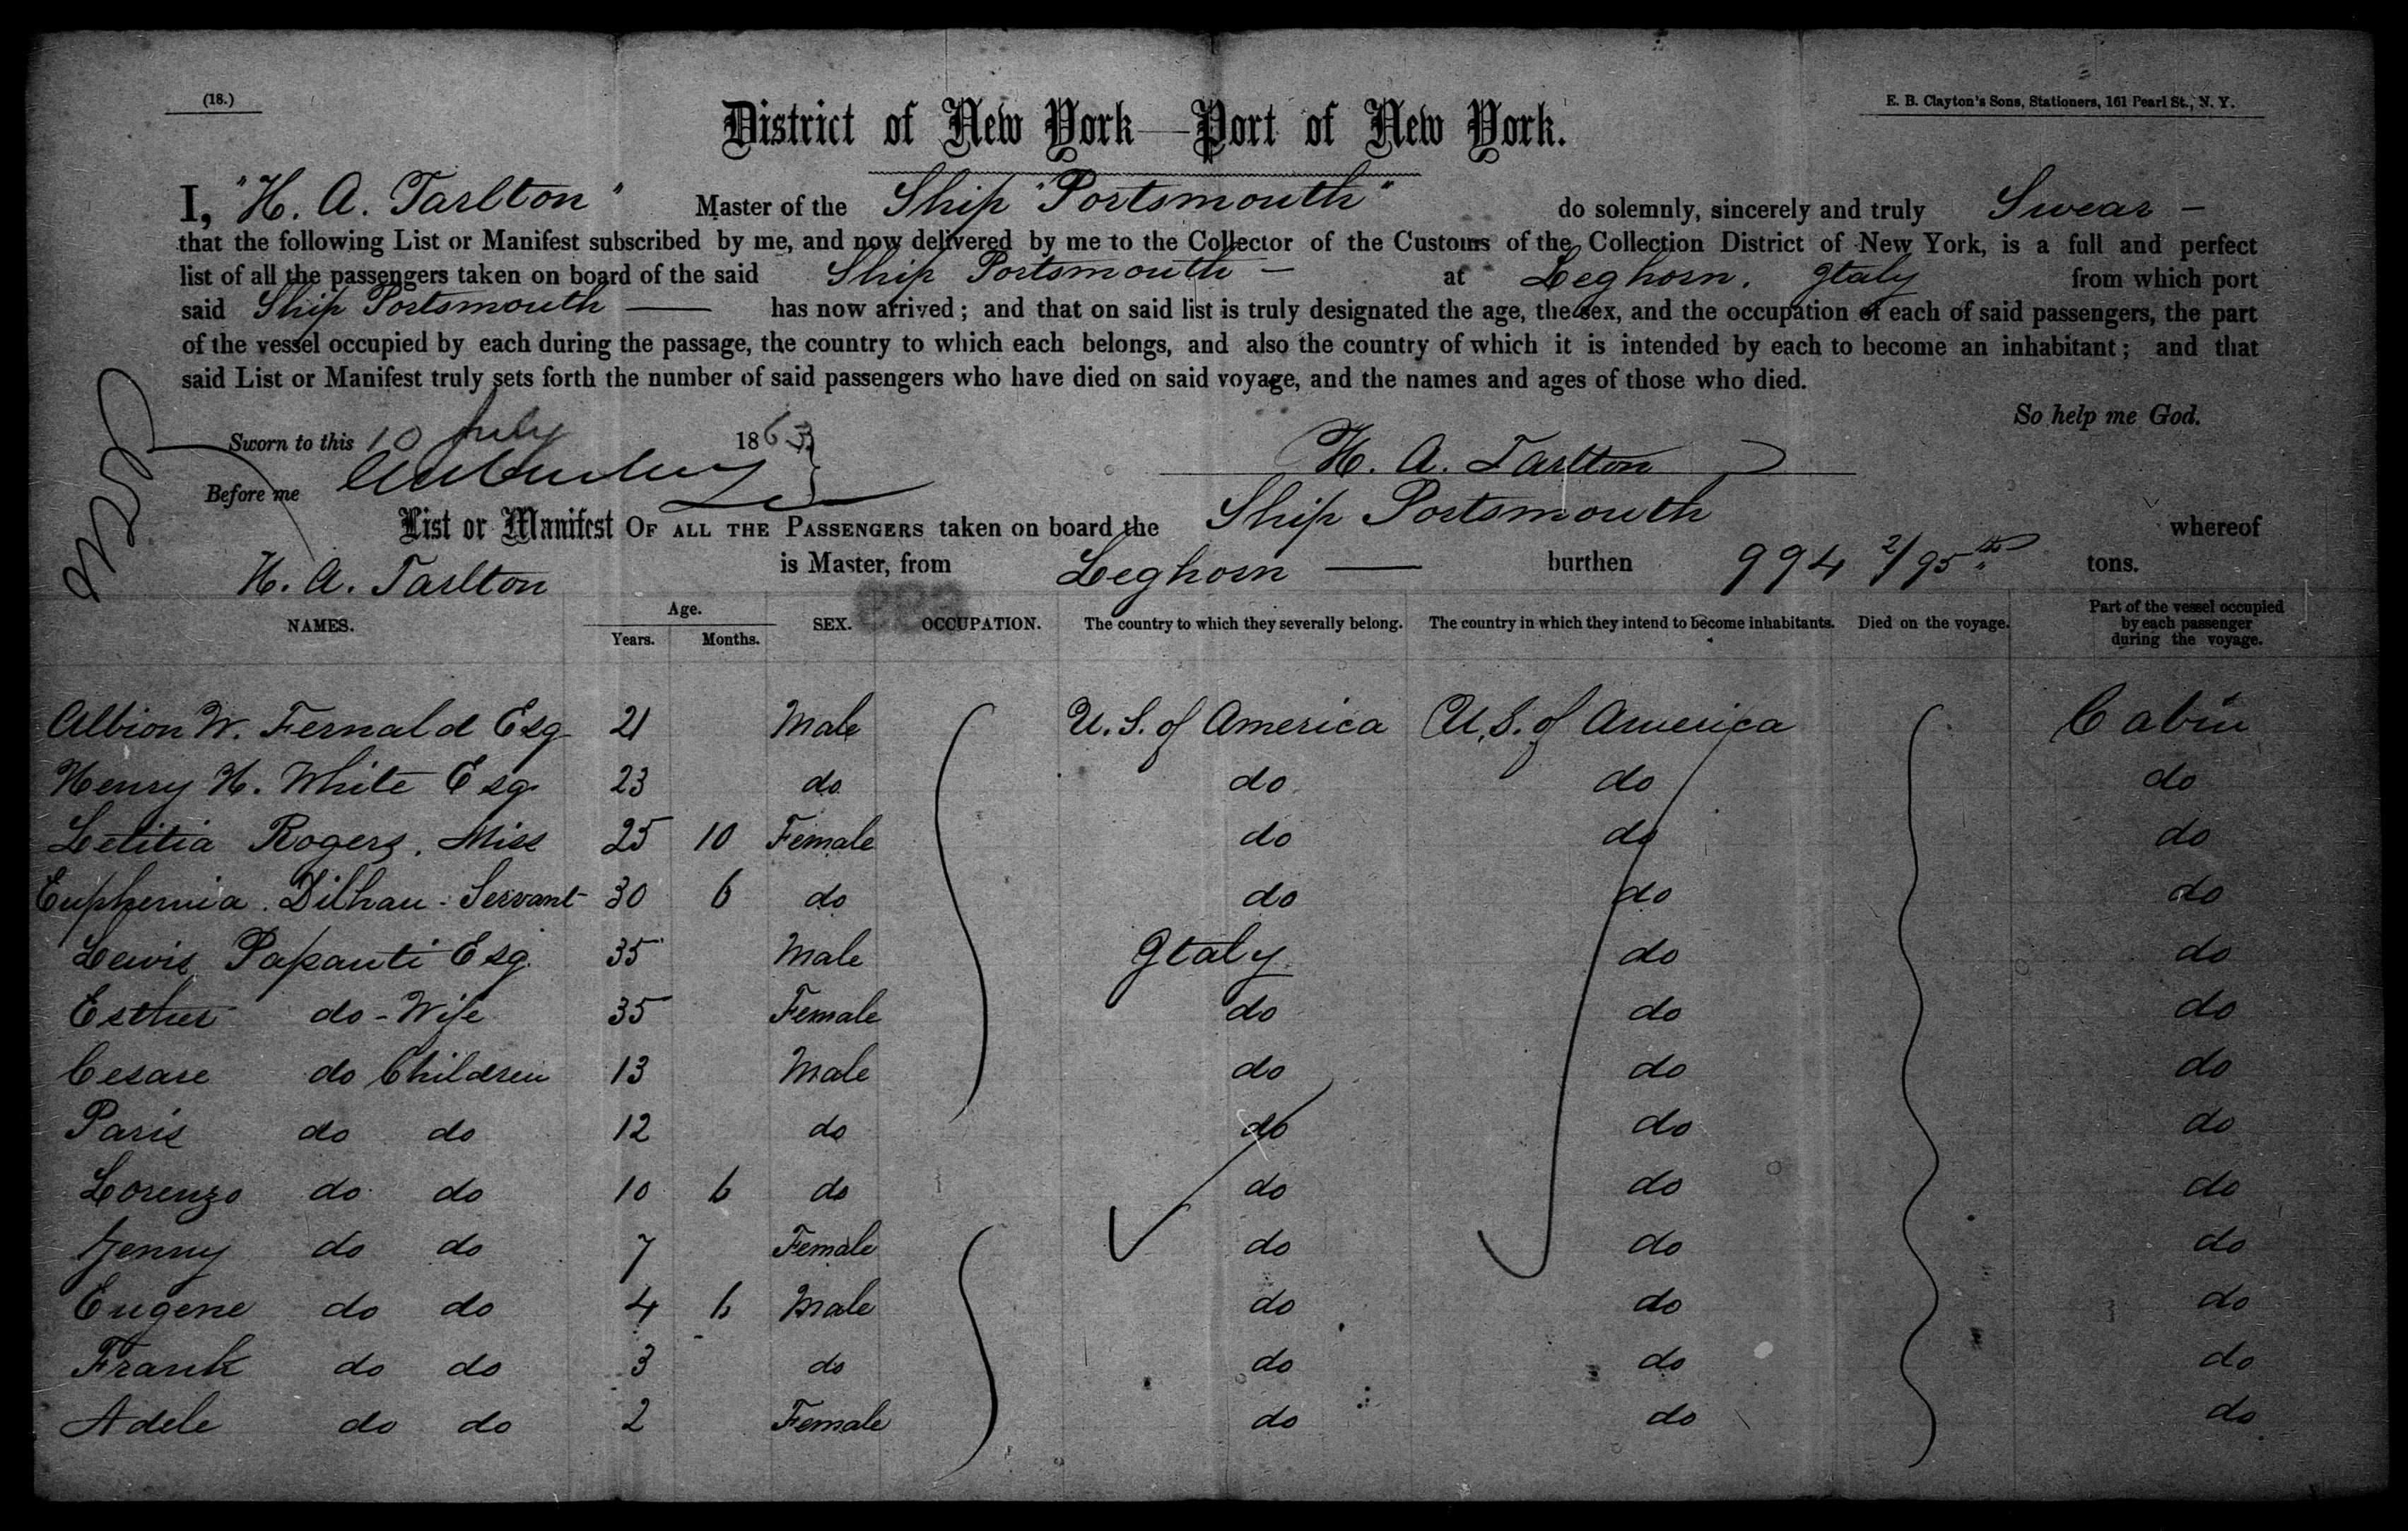 (18.)
E. B. Clayton's Sons, Stationers, 161 Pearl St., N. Y.
District of New York—Port of New York.
I, "H. A. Tarlton" Master of the Ship "Portsmouth" do solemnly, sincerely and truly Swear —
that the following List or Manifest subscribed by me, and now delivered by me to the Collector of the Customs of the Collection District of New York, is a full and perfect
list of all the passengers taken on board of the said Ship Portsmouth — at Leghorn, Italy from which port
said Ship Portsmouth — has now arrived; and that on said list is truly designated the age, the sex, and the occupation of each of said passengers, the part
of the vessel occupied by each during the passage, the country to which each belongs, and also the country of which it is intended by each to become an inhabitant; and that
said List or Manifest truly sets forth the number of said passengers who have died on said voyage, and the names and ages of those who died.
So help me God.
Sworn to this 10 July 1863
H. A. Tarlton
Before me
List or Manifest OF ALL THE PASSENGERS taken on board the Ship Portsmouth whereof
H. A. Tarlton is Master, from Leghorn — burthen 994 2/95ths tons.
NAMES. Age. Years. Months. SEX. OCCUPATION. The country to which they severally belong. The country in which they intend to become inhabitants. Died on the voyage. Part of the vessel occupied by each passenger during the voyage.
Albion W. Fernald Esq 21 Male U. S. of America U. S. of America Cabin
Henry H. White Esq 23 do do do do
Letitia Rogers, Miss 25 10 Female do do do
Euphemia Dilhau - Servant 30 6 do do do do
Lewis Papanti Esq. 35 Male Italy do do
Esther do - Wife 35 Female do do do
Cesare do Children 13 Male do do do
Paris do do 12 do do do do
Lorenzo do do 10 6 do do do do
Jenny do do 7 Female do do do
Eugene do do 4 6 Male do do do
Frank do do 3 do do do do
Adele do do 2 Female do do do